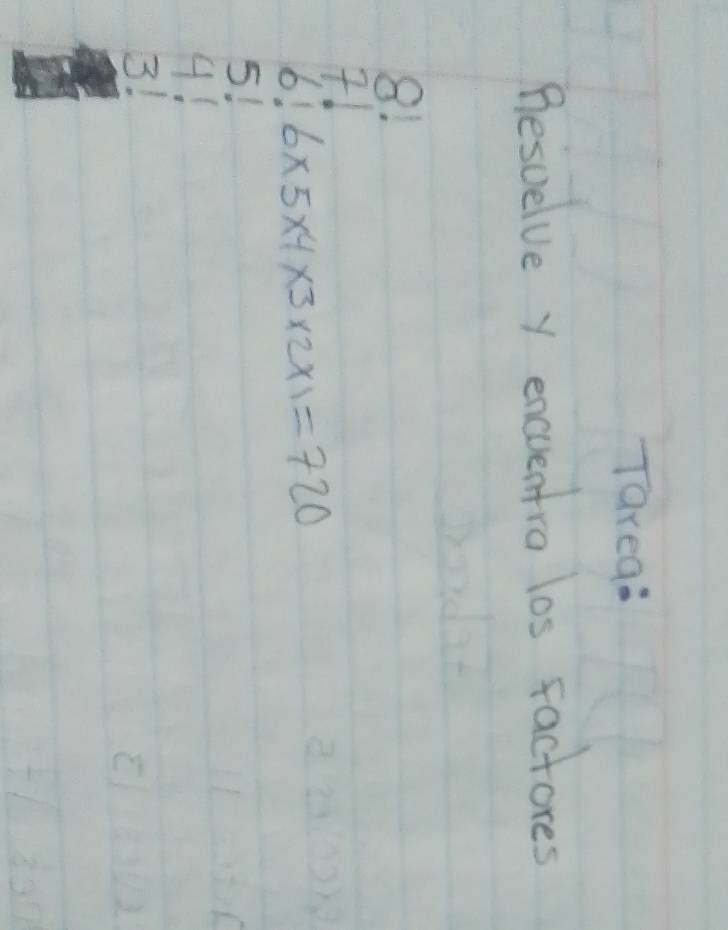 Tarea:
Resuelve y encuentra los factores
8!
7!
6! 6x5x4x3x2x1=720
5!
4!
3!